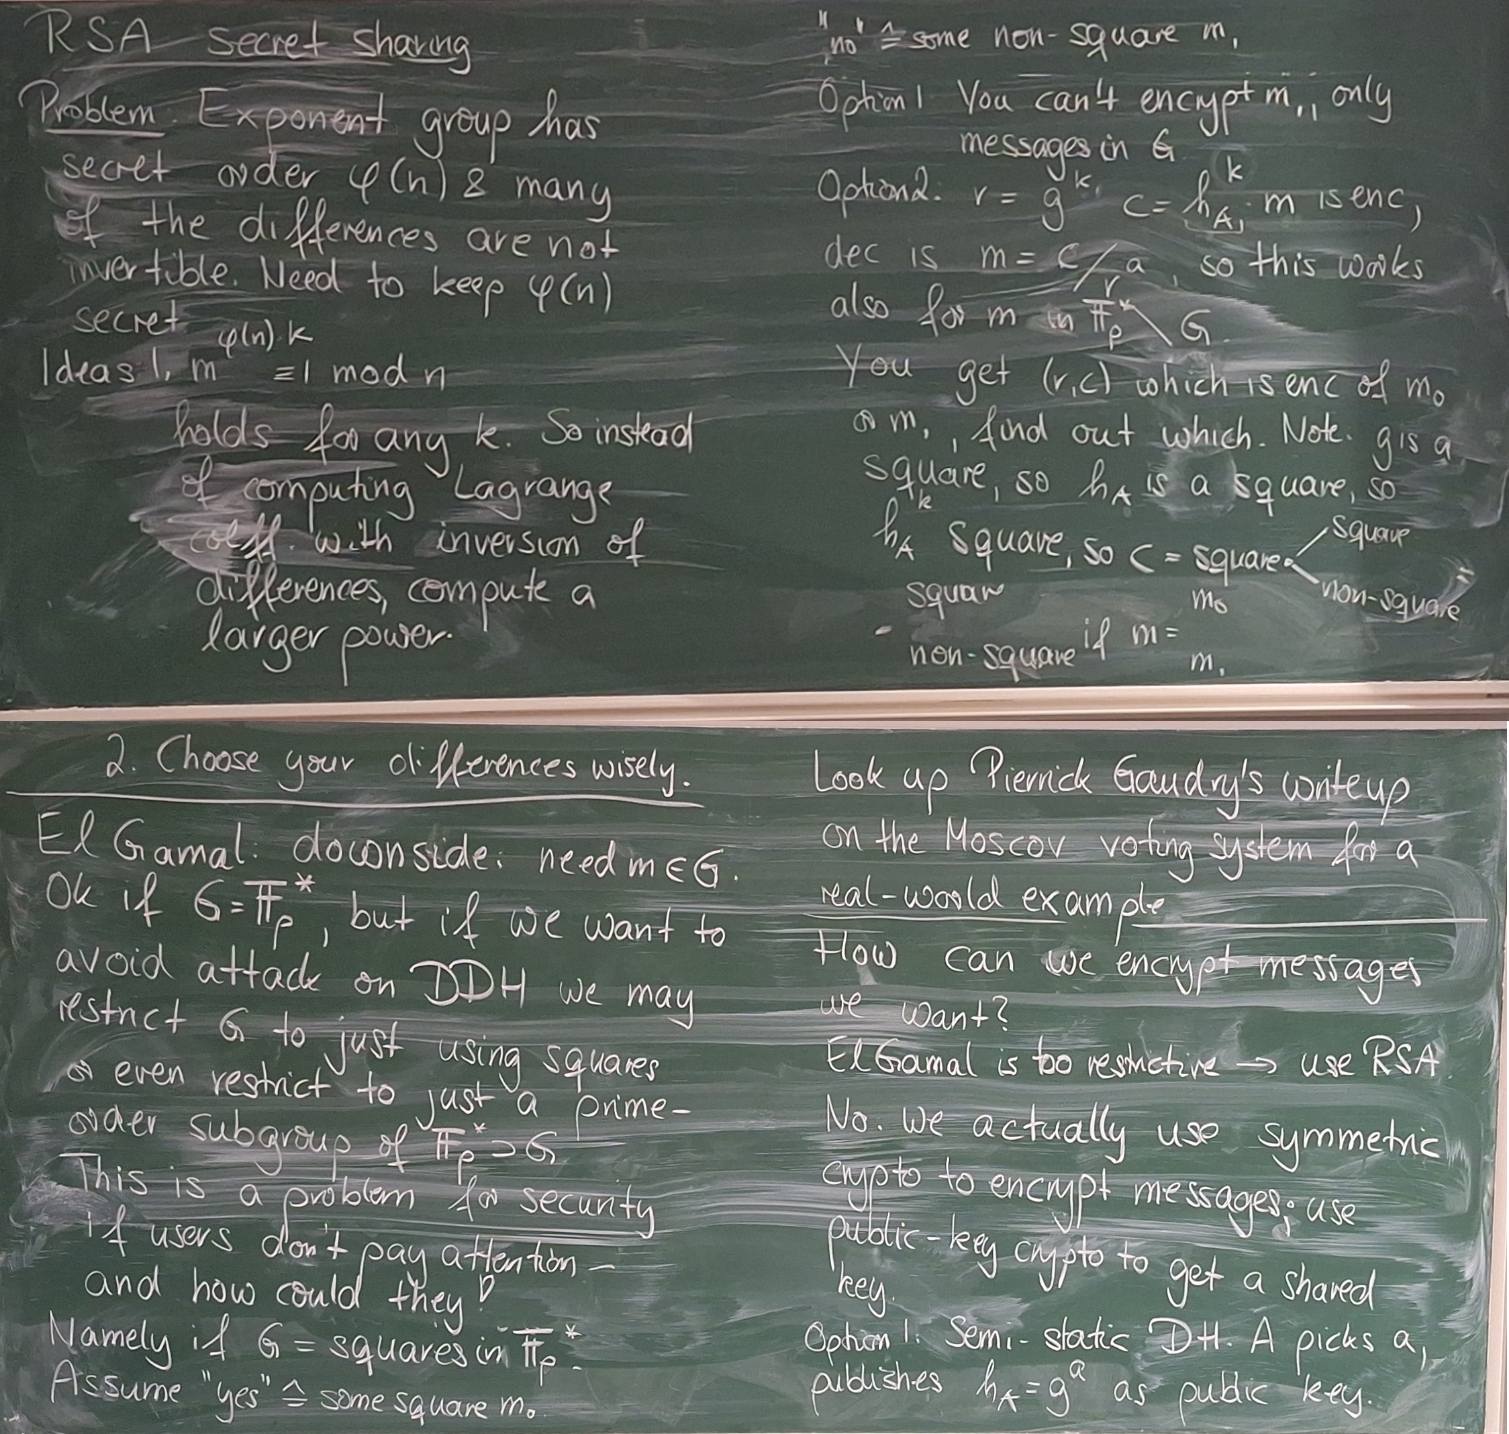 RSA secret sharing
Problem: Exponent group has
secret order φ(n) & many
of the differences are not
invertible. Need to keep φ(n)
secret
Ideas 1, m^{φ(n)·k} ≡ 1 mod n
holds for any k. So instead
of computing Lagrange
coeff. with inversion of
differences, compute a
larger power.
2. Choose your differences wisely.
El Gamal: downside: need m ∈ G.
Ok if G = 𝔽_p^*, but if we want to
avoid attack on DDH we may
restrict G to just using squares
or even restrict to just a prime-
order subgroup of 𝔽_p^* ⊃ G
This is a problem for security
if users don't pay attention –
and how could they?
Namely if G = squares in 𝔽_p^*.
Assume "yes" ≙ some square m₀
"no" ≙ some non-square m₁
Option 1 You can't encrypt m₁, only
messages in G
Option 2. r = g^k, c = h_A^k · m is enc,
dec is m = c/r^a, so this works
also for m in 𝔽_p^* \ G.
You get (r,c) which is enc of m₀
or m₁, find out which. Note. g is a
square, so h_A is a square, so
h_A^k square, so c = square · square
non-square
square m₀
non-square if m = m₁
Look up Pierrick Gaudry's writeup
on the Moscov voting system for a
real-world example
How can we encrypt messages
we want?
El Gamal is too restrictive → use RSA
No. We actually use symmetric
crypto to encrypt messages; use
public-key crypto to get a shared
key.
Option 1: Semi-static DH. A picks a,
publishes h_A = g^a as public key.